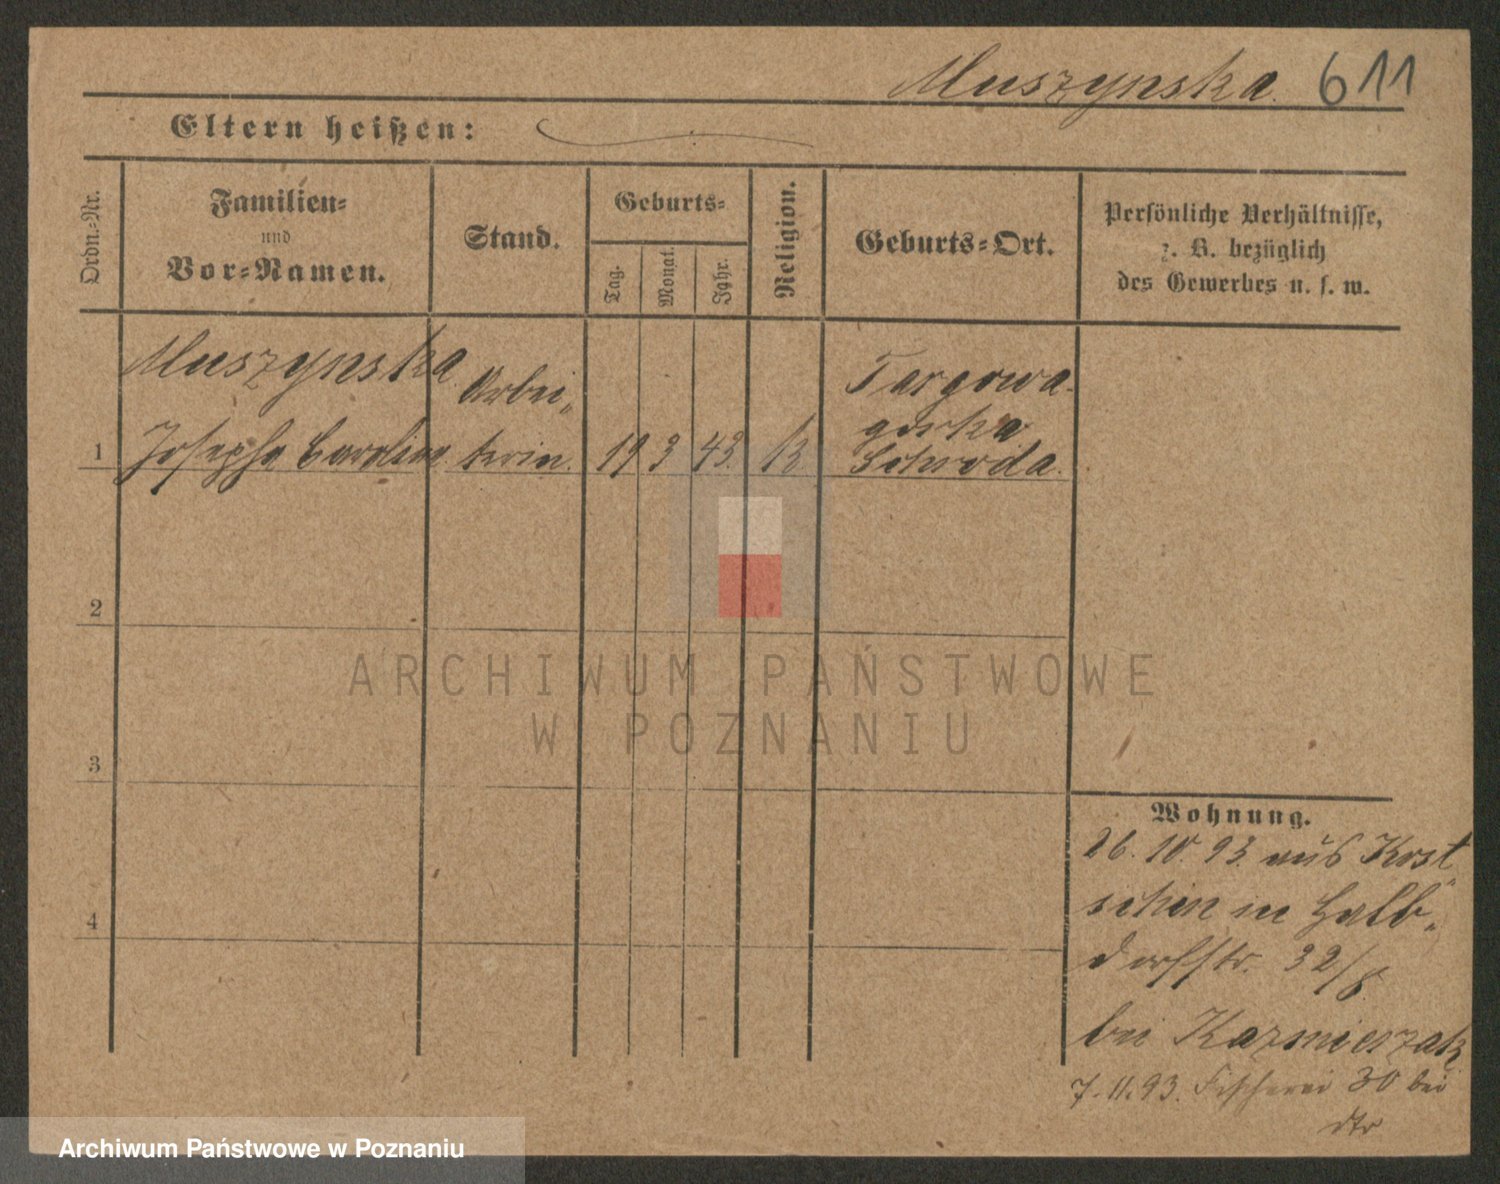 Muszynska 611
Eltern heißen:
Ordn.-Nr.
Familien-
und
Vor-Namen.
Stand.
Geburts-
Tag.
Monat.
Jahr.
Religion.
Geburts-Ort.
Persönliche Verhältnisse,
z. B. bezüglich
des Gewerbes u. s. w.
Muszynska
Arbei„
Targowa-
gorka
1 Josepha Carolina terin. 19 3 43. k Schroda.
2
3
4
Wohnung.
26. 10. 93. aus Kost„
schin in Halb„
dorfstr. 32/8.
bei Kazmierzak
7. 11. 93. Fischerei 30 bei
dto
ARCHIWUM PAŃSTWOWE
W POZNANIU
Archiwum Państwowe w Poznaniu